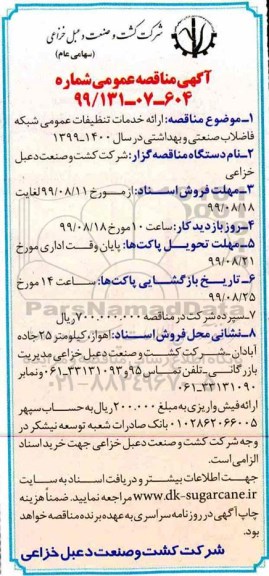 شرکت کشت و صنعت دعبل خزاعی
(سهامی عام)
آگهی مناقصه عمومی شماره
۹۹/۱۳۱-۰۷-۶۰۴
۱-موضوع مناقصه: ارائه خدمات تنظیفات عمومی شبکه
فاضلاب صنعتی و بهداشتی در سال ۱۴۰۰-۱۳۹۹
۲-نام دستگاه مناقصه گزار: شرکت کشت و صنعت دعبل
خزاعی
۳-مهلت فروش اسناد: از مورخ ۹۹/۰۸/۱۱ لغایت
۹۹/۰۸/۱۸
۴-روز بازدید کار: ساعت ۱۰ مورخ ۹۹/۰۸/۱۸
۵-مهلت تحویل پاکت‌ها: پایان وقت اداری مورخ
۹۹/۰۸/۲۱
۶-تاریخ بازگشایی پاکت‌ها: ساعت ۱۴ مورخ
۹۹/۰۸/۲۵
۷-سپرده شرکت در مناقصه ۷۰۰.۰۰۰.۰۰۰ ریال
۸-نشانی محل فروش اسناد: اهواز، کیلومتر ۲۵ جاده
آبادان-شرکت کشت و صنعت دعبل خزاعی مدیریت
بازرگانی-تلفن تماس ۹۵ و ۳۳۱۳۱۰۹۳-۰۶۱ و نمابر
۳۳۱۳۱۰۹۰-۰۶۱
ارائه فیش واریزی به مبلغ ۲۰۰.۰۰۰ ریال به حساب سپهر
۰۱۰۲۸۶۲۰۶۶۰۰۵ بانک صادرات شعبه توسعه نیشکر در
وجه شرکت کشت و صنعت دعبل خزاعی جهت خرید اسناد
الزامی است.
جهت اطلاعات بیشتر و دریافت اسناد به سایت
www.dk-sugarcane.ir مراجعه نمایید. ضمناً هزینه
چاپ آگهی در روزنامه سراسری به عهده برنده مناقصه خواهد
بود.
شرکت کشت و صنعت دعبل خزاعی